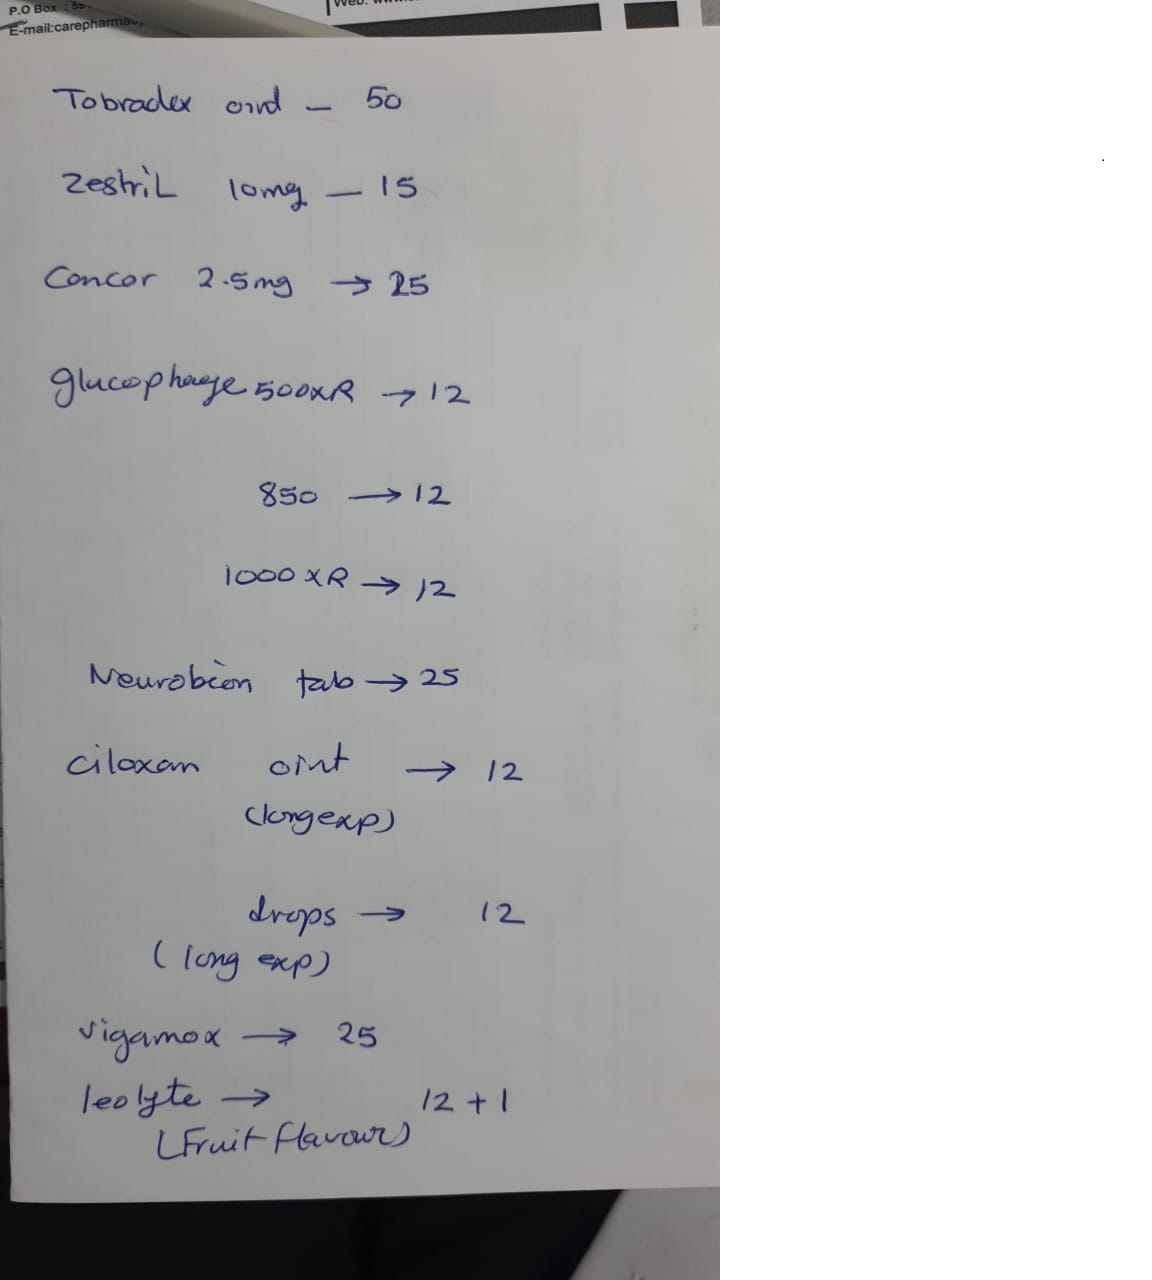 P.O Box : 55
Web:
E-mail:carepharmacy
Tobradex oint - 50
Zestril 10mg - 15
Concor 2.5mg → 25
glucophage 500XR → 12
850 → 12
1000 XR → 12
Neurobion tab → 25
ciloxan oint → 12
(long exp)
drops → 12
(long exp)
vigamox → 25
leolyte → 12 + 1
(Fruit flavour)